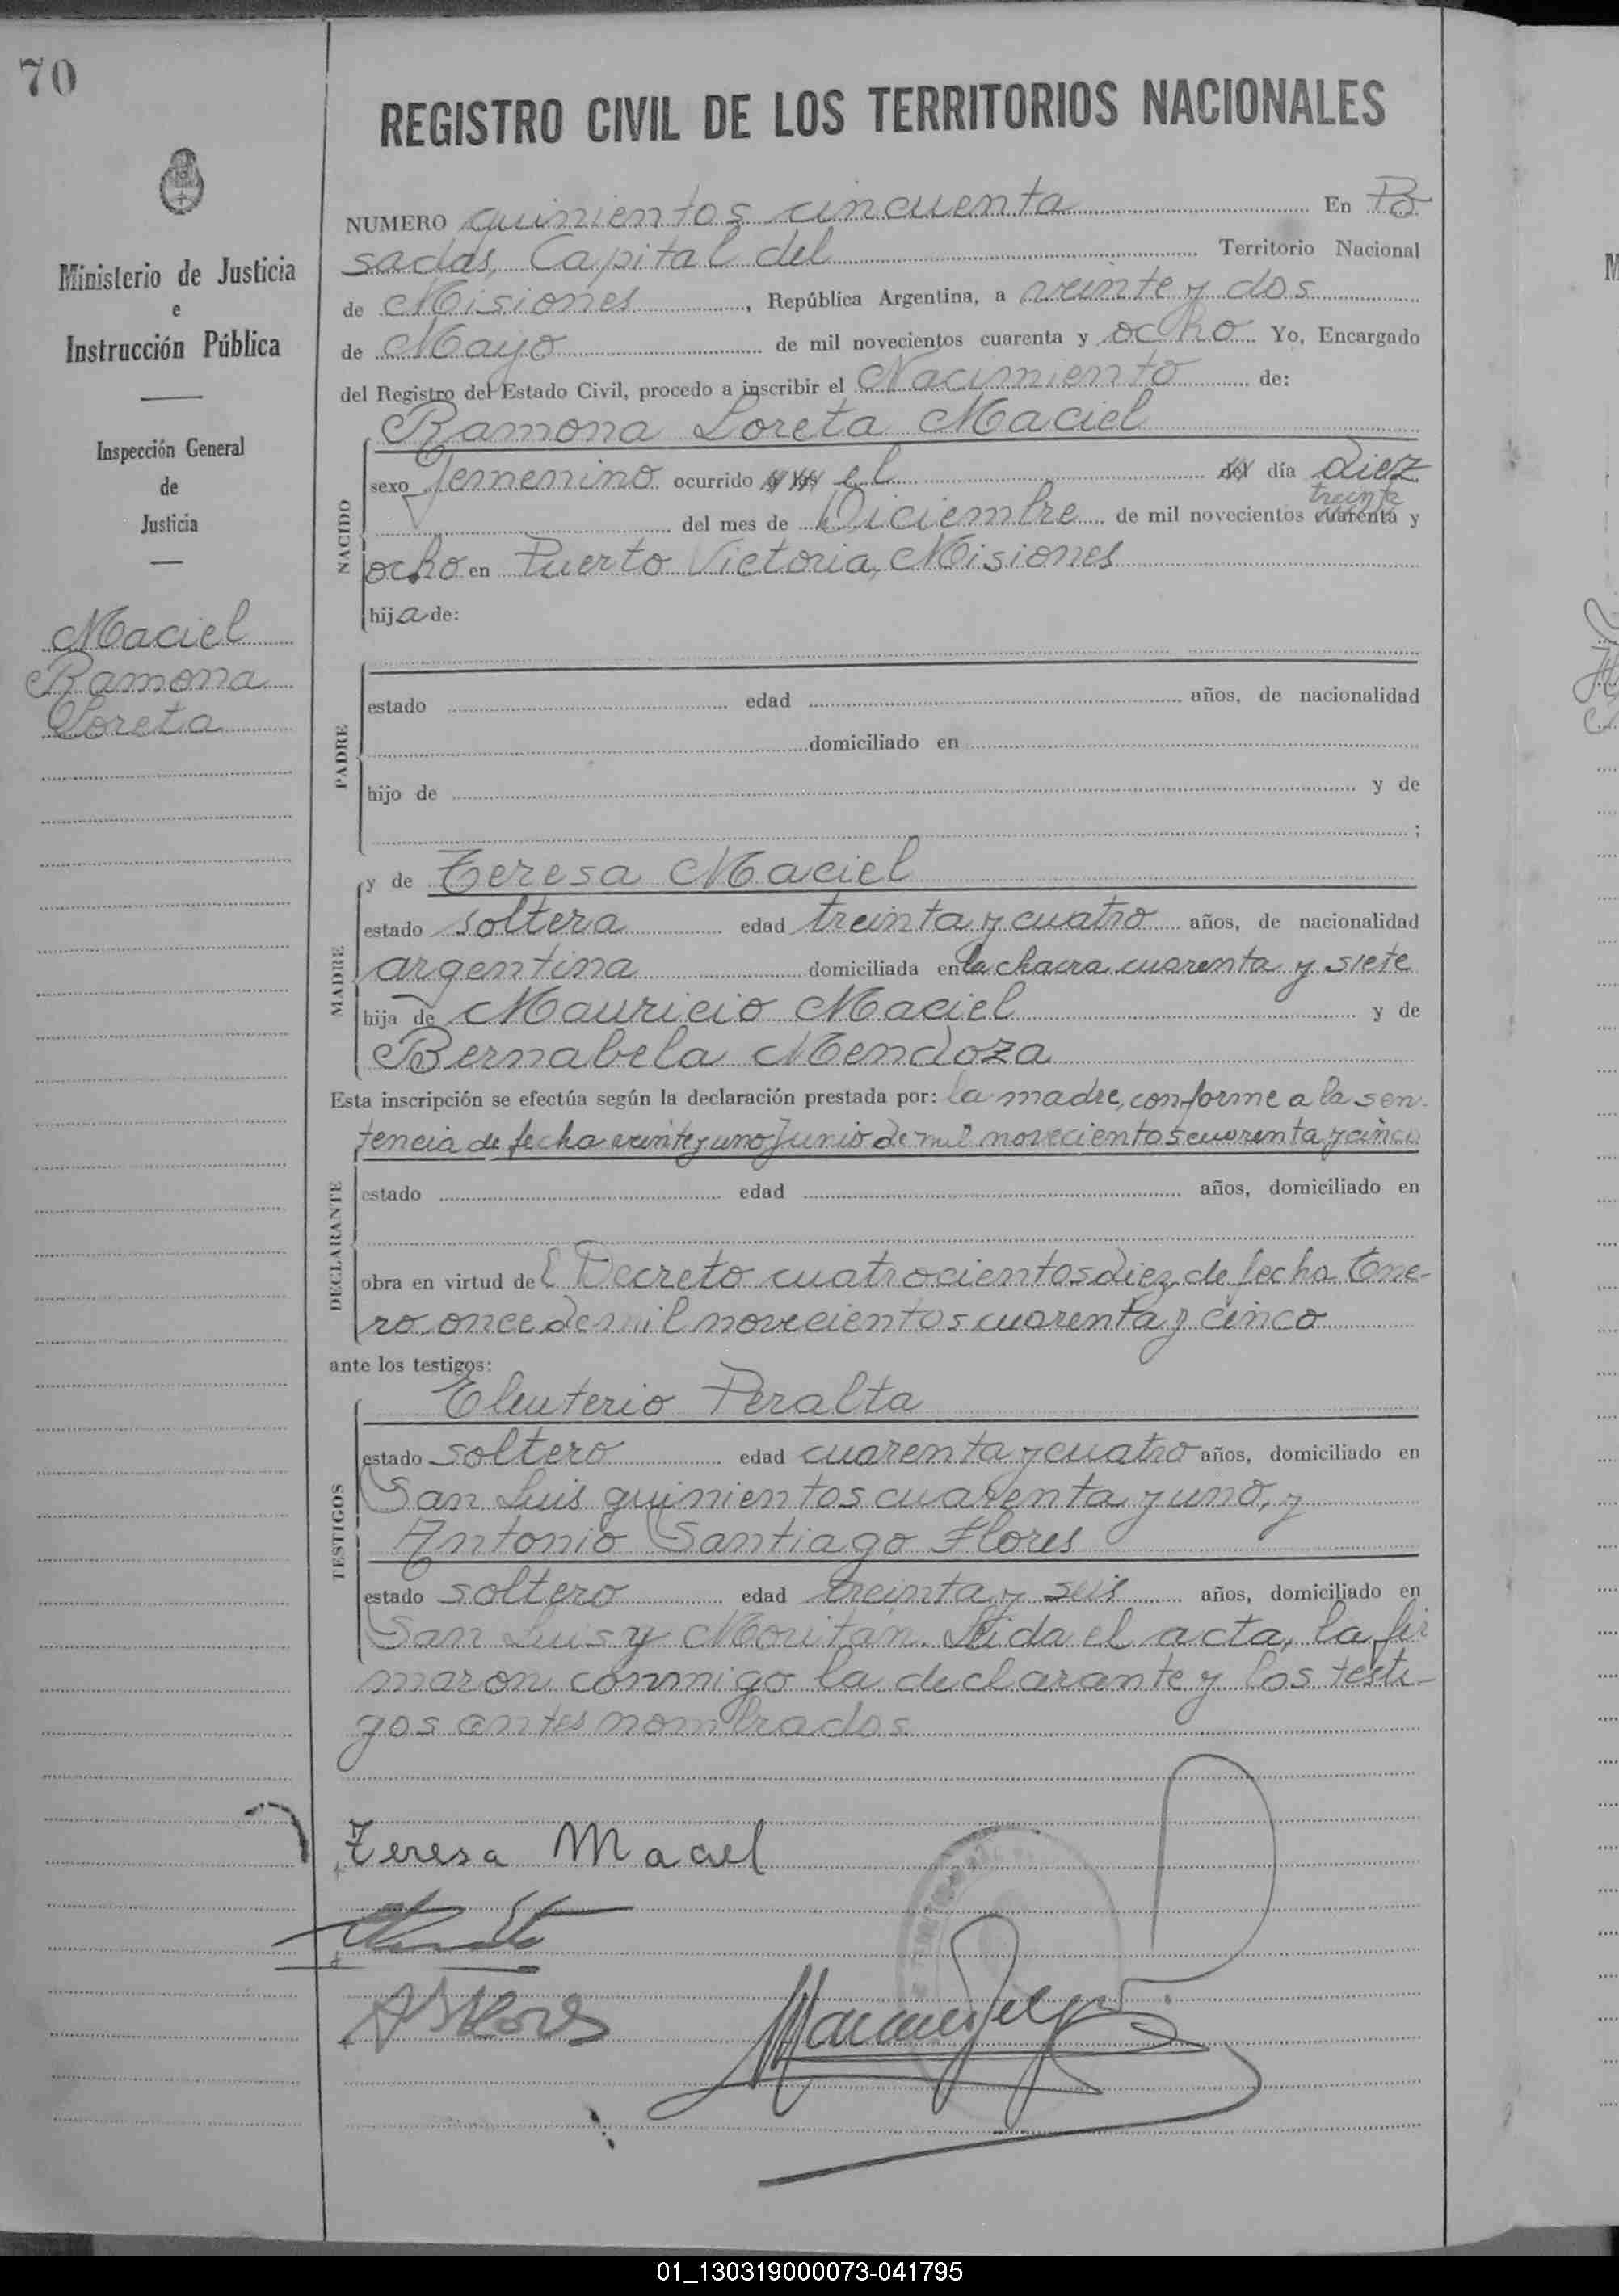 70
Ministerio de Justicia
e
Instrucción Pública
Inspección General
de
Justicia
Maciel
Ramona
Loreta
REGISTRO CIVIL DE LOS TERRITORIOS NACIONALES
NUMERO quinientos cincuenta En Po
sadas, Capital del Territorio Nacional
de Misiones, República Argentina, a veinte y dos
de Mayo de mil novecientos cuarenta y ocho Yo, Encargado
del Registro del Estado Civil, procedo a inscribir el Nacimiento de:
Ramona Loreta Maciel
NACIDO
sexo femenino ocurrido el día diez
treinta
del mes de Diciembre de mil novecientos cuarenta y
ocho en Puerto Victoria, Misiones
hija de:
PADRE
estado edad años, de nacionalidad
domiciliado en
hijo de y de
;
MADRE
y de Teresa Maciel
estado soltera edad treinta y cuatro años, de nacionalidad
argentina domiciliada en la chacra cuarenta y siete
hija de Mauricio Maciel y de
Bernabela Mendoza
Esta inscripción se efectúa según la declaración prestada por: la madre, conforme a la sen-
tencia de fecha veinte y uno Junio de mil novecientos cuarenta y cinco
DECLARANTE
estado edad años, domiciliado en
obra en virtud del Decreto cuatrocientos diez de fecha Ene-
ro once de mil novecientos cuarenta y cinco
ante los testigos:
TESTIGOS
Eleuterio Peralta
estado soltero edad cuarenta y cuatro años, domiciliado en
San Luis quinientos cuarenta y uno, y
Antonio Santiago Flores
estado soltero edad treinta y seis años, domiciliado en
San Luis y Moritán. Leida el acta, la fir
maron conmigo la declarante y los testi-
gos antes nombrados
Teresa Maciel
ASFlores
01_130319000073-041795